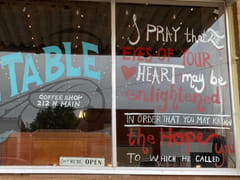 TABLE
COFFEE SHOP
212 N. MAIN
OPEN
I PRAY that
EYES OF YOUR
HEART may be
enlightened
IN ORDER THAT YOU MAY KNOW
the Hope
TO WHICH HE CALLED